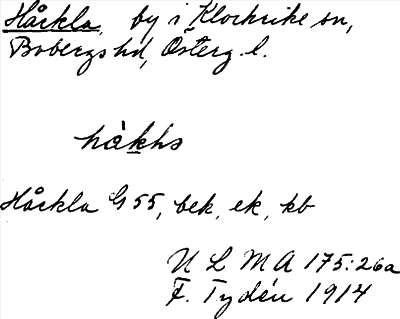 Håckla, by i Klockrike sn,
Bobergs hd, Österg. l.
Håckla G 55, bek, ek, kb
U L M A 175:26a
F. Tydén 1914